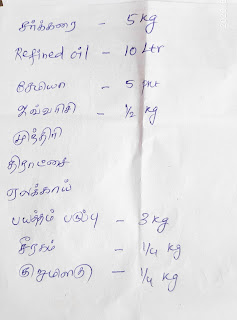 சர்க்கரை - 5 kg
Refined oil - 10 Ltr
சேமியா - 5 pkt
ஜவ்வரிசி - ½ kg
முந்திரி
திராட்சை
ஏலக்காய்
பயத்தம் பருப்பு - 3 kg
சீரகம் - ¼ kg
குறுமிளகு - ¼ kg